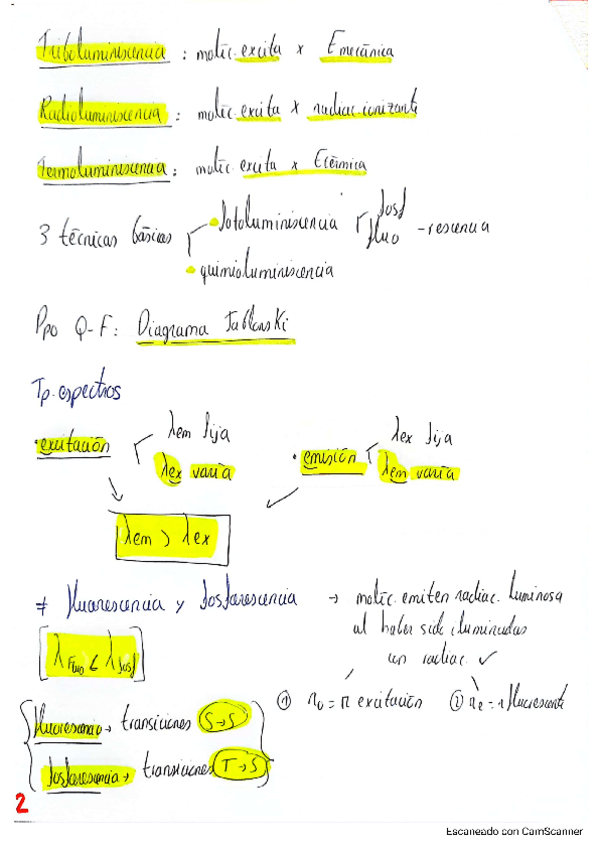 Triboluminiscencia : moléc. excita x Emecánica
Radioluminiscencia : moléc. excita x radiac. ionizante
Termoluminiscencia : moléc. excita x Etérmica
3 técnicas básicas
• fotoluminiscencia
fosf
fluo
- rescencia
• quimioluminiscencia
Ppo Q-F: Diagrama Jablonski
Tp. espectros
• excitación
λem fija
λex varía
• emisión
λex fija
λem varía
λem > λex
≠ fluorescencia y fosforescencia → moléc. emiten radiac. luminosa
al haber sido iluminadas
con radiac. ✓
[λFluo < λfosf]
① r₀ = r excitación
② = r fluorescente
fluorescencia → transiciones S→S
fosforescencia → transiciones T→S
2
Escaneado con CamScanner